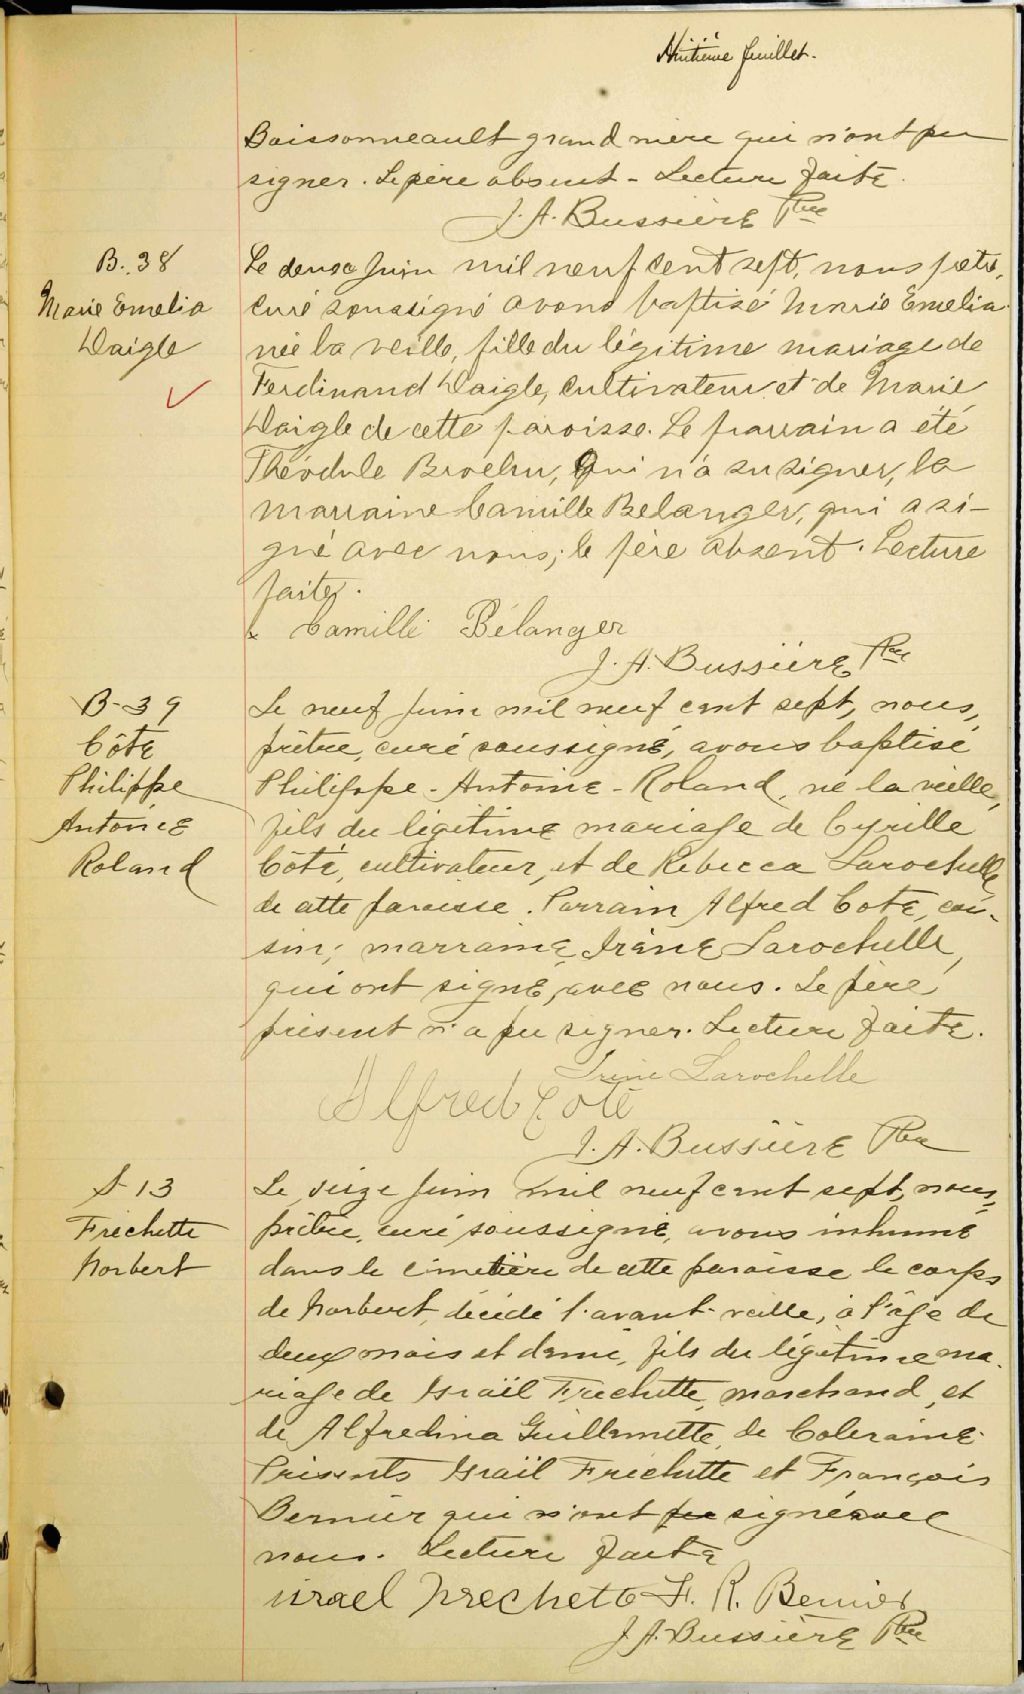 Huitième feuillet.
Boissonneault grand mère qui n'ont pu
signer. Le père absent - Lecture faite.
J. A. Bussière Ptre
B. 38
Marie Emelia
Daigle
Le douze Juin mil neuf cent sept, nous prêtre,
curé soussigné avons baptisé Marie Emelia
née la veille, fille du légitime mariage de
Ferdinand Daigle, cultivateur et de Marie
Daigle de cette paroisse. Le parrain a été
Théodule Brochu, qui n'a su signer, la
marraine Camille Belanger, qui a si-
gné avec nous; le père absent. Lecture
faite.
x Camille Bélanger
J. A. Bussière Ptre
B-39
Côté
Philippe
Antoine
Roland
Le neuf Juin mil neuf cent sept, nous,
prêtre, curé soussigné, avons baptisé
Philippe-Antoine-Roland, né la veille,
fils du légitime mariage de Cyrille
Côté, cultivateur, et de Rebecca Larochelle
de cette paroisse. Parrain Alfred Coté, cou-
sin; marraine, Irène Larochelle,
qui ont signé, avec nous. Le père,
présent n'a pu signer. Lecture faite.
Irène Larochelle
Alfred Coté
J. A. Bussière Ptre
S-13
Frechette
Norbert
Le seize Juin mil neuf cent sept, nous,
prêtre, curé soussigné, avons inhumé
dans le cimetière de cette paroisse le corps
de Norbert, décédé l'avant-veille, à l'âge de
deux mois et demi, fils du légitime ma-
riage de Israël Frechette, marchand, et
de Alfredina Guillemette, de Coleraine.
Présents Israël Frechette et François
Bernier qui n'ont pu signé avec
nous. Lecture faite
israel Frechette F. R. Bernier
J. A. Bussière Ptre